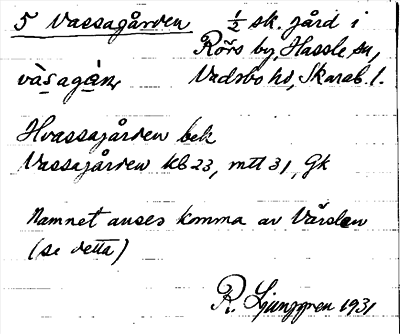 5 Vassagården ½ sk. gård i
Rörs by, Hassle sn,
vàsagàɳ Vadsbo hd, Skarab. l.
Hvassagården bek
Vassagården kb 23, mtl 31, Gk
Namnet anses komma av Vårslen
(se detta)
R. Ljunggren 1931